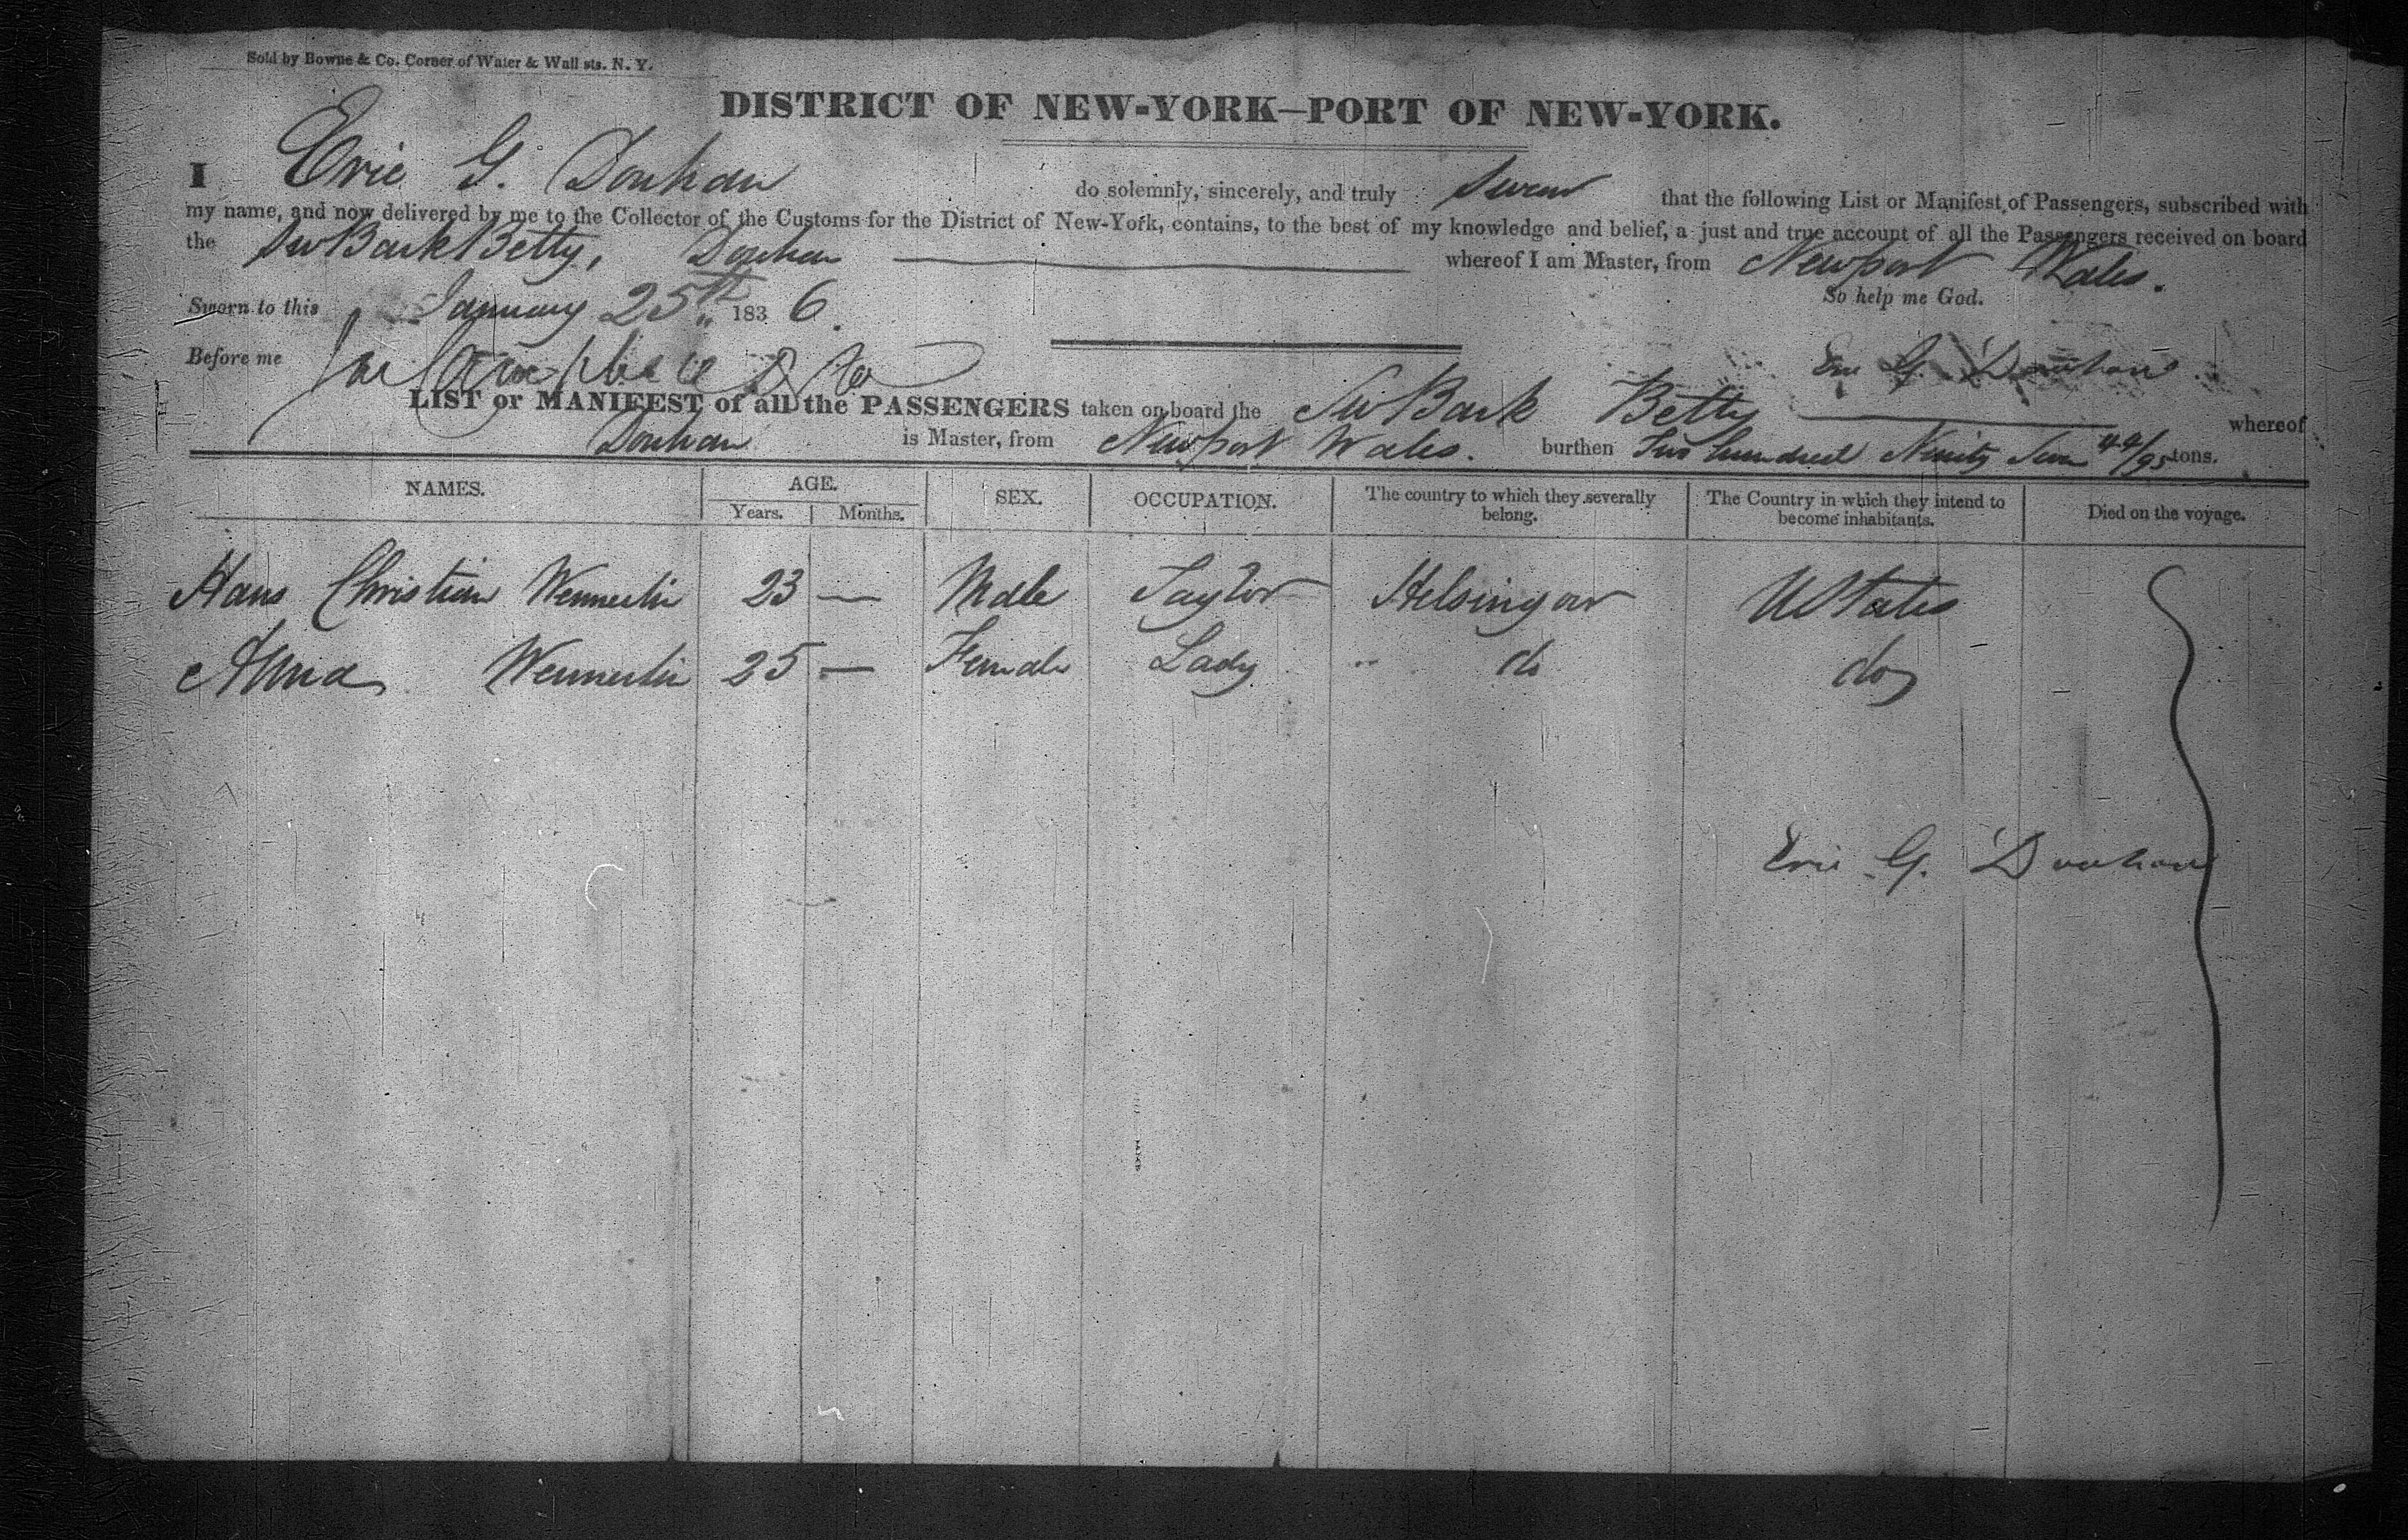 Sold by Bowne & Co. Corner of Water & Wall sts. N. Y.
DISTRICT OF NEW-YORK—PORT OF NEW-YORK.
I Eric G. Douhan do solemnly, sincerely, and truly Swear that the following List or Manifest of Passengers, subscribed with
my name, and now delivered by me to the Collector of the Customs for the District of New-York, contains, to the best of my knowledge and belief, a just and true account of all the Passengers received on board
the Sw Bark Betty, Douhan whereof I am Master, from Newport Wales.
So help me God.
Sworn to this January 25th 1836.
Before me
Eric G. Douhan
LIST or MANIFEST of all the PASSENGERS taken on board the Sw Bark Betty whereof
Douhan is Master, from Newport Wales. burthen Two hundred Ninity Seven 44/95 tons.
NAMES. AGE. SEX. OCCUPATION. The country to which they severally belong. The Country in which they intend to become inhabitants. Died on the voyage.
Years. Months.
Hans Christian Wennerlin 23 — Male Taylor Helsingour UStates
Anna Wennerlin 25 — Female Lady " do do
Eric G. Douhan